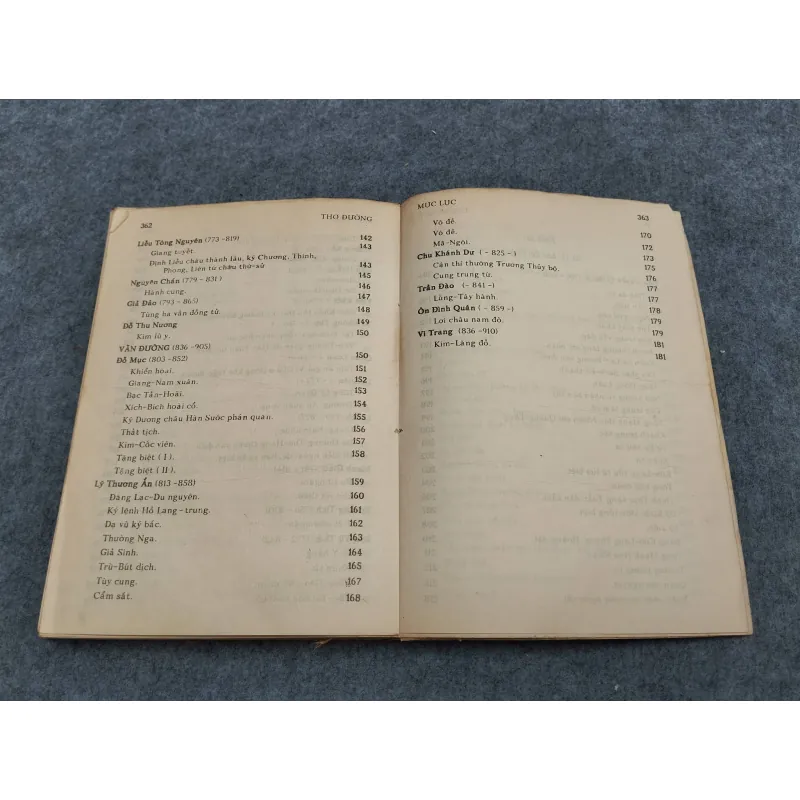 362 THƠ ĐƯỜNG
Liễu Tông Nguyên (773 -819) 142
Giang tuyết. 143
Định Liễu châu thành lâu, ký Chương, Thinh,
Phong, Liên tứ châu thứ-sử 143
Nguyên Chẩn (779 - 831) 145
Hành cung. 146
Giả Đảo (793 - 865) 147
Tùng hạ vấn đồng tử. 148
Đỗ Thu Nương 149
Kim lũ y. 150
VÃN ĐƯỜNG (836 -905)
Đỗ Mục (803 -852) 150
Khiển hoài. 151
Giang-Nam xuân. 152
Bạc Tần-Hoài. 153
Xích-Bích hoài cổ. 154
Ký Dương châu Hàn Sước phán quan. 155
Thất tịch. 156
Kim-Cốc viên. 157
Tặng biệt ( I ). 158
Tặng biệt ( II ).
Lý Thương Ẩn (813 -858) 159
Đăng Lạc-Du nguyên. 160
Ký lệnh Hồ Lang-trung. 161
Dạ vũ ký bắc. 162
Thường Nga. 163
Giả Sinh. 164
Trù-Bút dịch. 165
Tùy cung. 167
Cẩm sắt. 168
MỤC LỤC 363
Vô đề.
Vô đề. 170
Mã-Ngôi. 172
Chu Khánh Dư ( - 825 - ) 173
Cận thí thướng Trương Thủy bộ. 175
Cung trung từ. 176
Trần Đào (- 841 -) 177
Lũng-Tây hành 177
Ôn Đình Quân ( - 859 -) 178
Lợi châu nam độ. 179
Vi Trang (836 -910) 179
Kim-Lăng đồ. 181
181